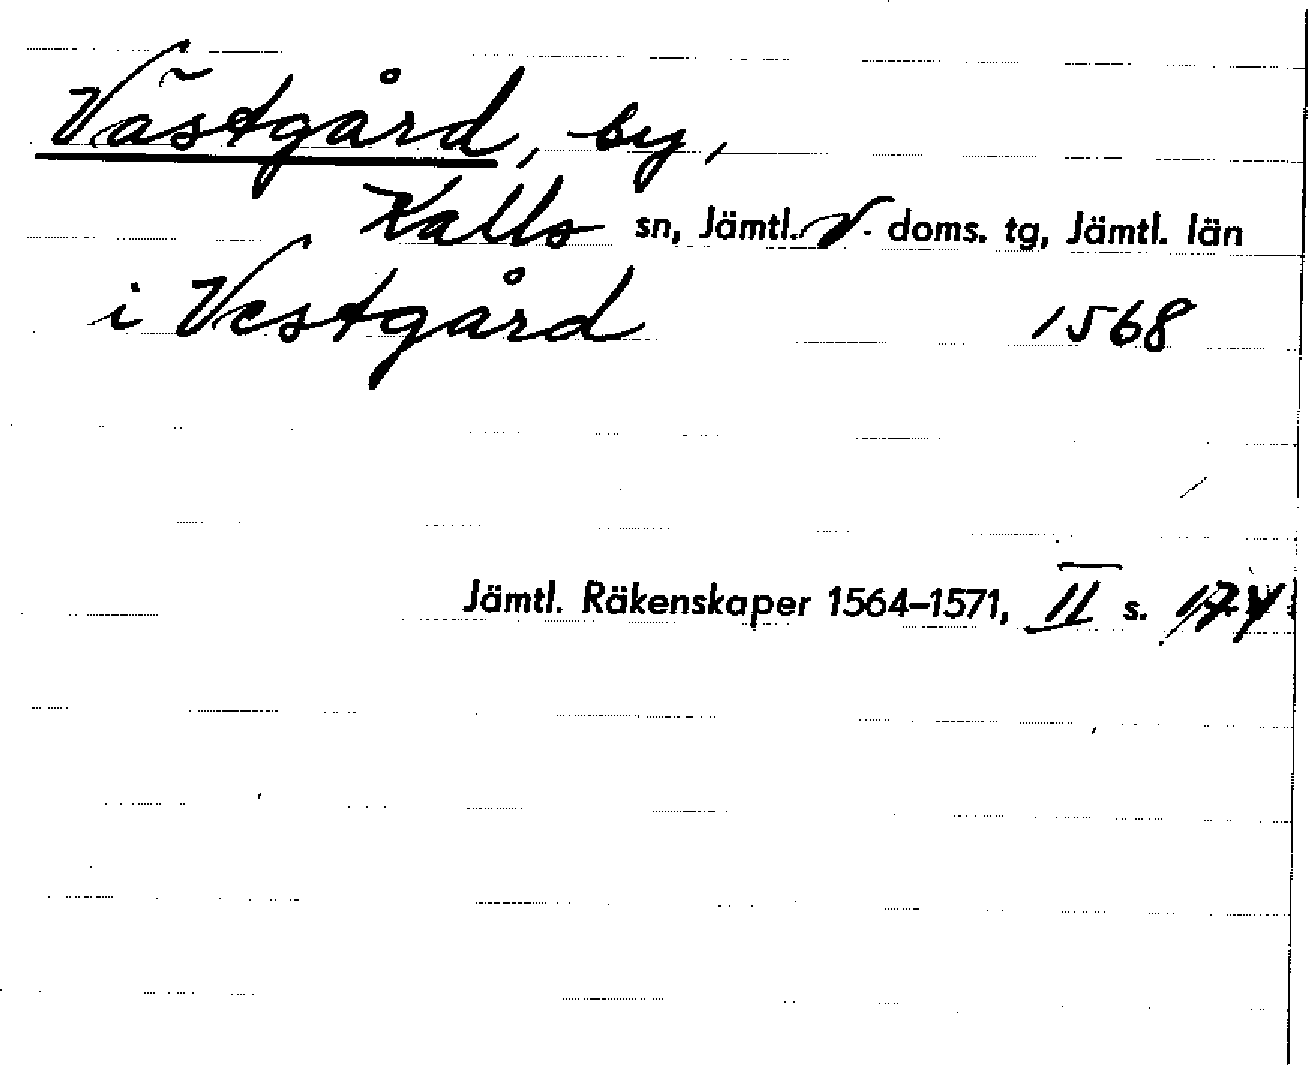 Västgård, by,
Kalls sn, Jämtl. V. doms. tg, Jämtl. län
i Vestgård 1568
Jämtl. Räkenskaper 1564–1571, II s.